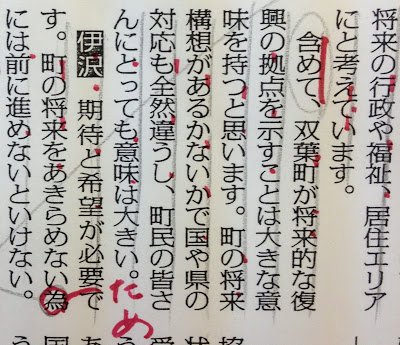 将来の行政や福祉、居住エリア
にと考えています。
含めて、双葉町が将来的な復
興の拠点を示すことは大きな意
味を持つと思います。町の将来
構想があるかないかで国や県の
対応も全然違うし、町民の皆さ
んにとっても意味は大きい。
伊沢 期待と希望が必要で
す。町の将来をあきらめない為
ため
には前に進めないといけない。